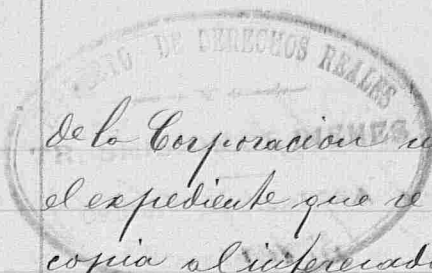 DE DERECHOS REALES
de la Corporacion
el expediente que se
copia al interesado